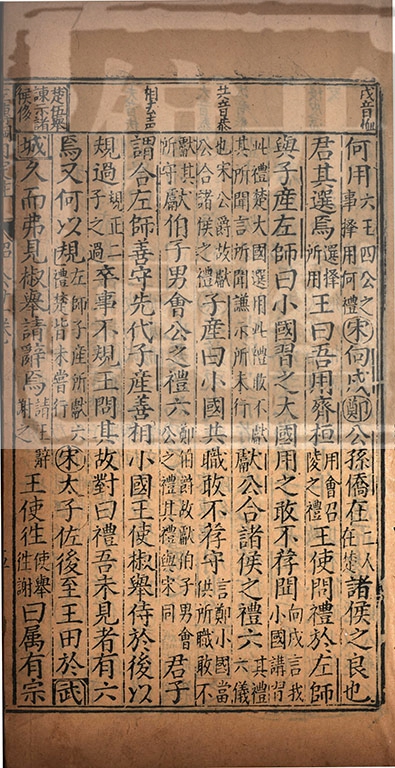 戌音恤
共音恭
相去聲
楚伍舉諫示諸侯侈
何用六王四公之事擇用何禮宋向戌鄭公孫僑在二人在楚諸侯之良也
君其選焉選擇所用王曰吾用齊桓用會召陵之禮王使問禮於左師
與子產左師曰小國習之大國用之敢不荐聞向戌言我小國講習
此禮楚大國選用此禮敢不獻其所聞言所聞謙示所未行獻公合諸侯之禮六其禮六儀
也宋公爵故獻公合諸侯之禮子產曰小國共職敢不荐守言鄭小國當供所職敢不
獻其所守獻伯子男會公之禮六鄭伯爵故獻伯子男會公之禮其禮與宋同君子
謂合左師善守先代子產善相小國王使椒舉侍於後以
規過規正二子之過卒事不規王問其故對曰禮吾未見者有六
焉又何以規左師子產所獻六禮楚皆未嘗行宋太子佐後至王田於武
城久而弗見椒舉請辭焉請王辭謝之王使往使舉往謝曰屬有宗